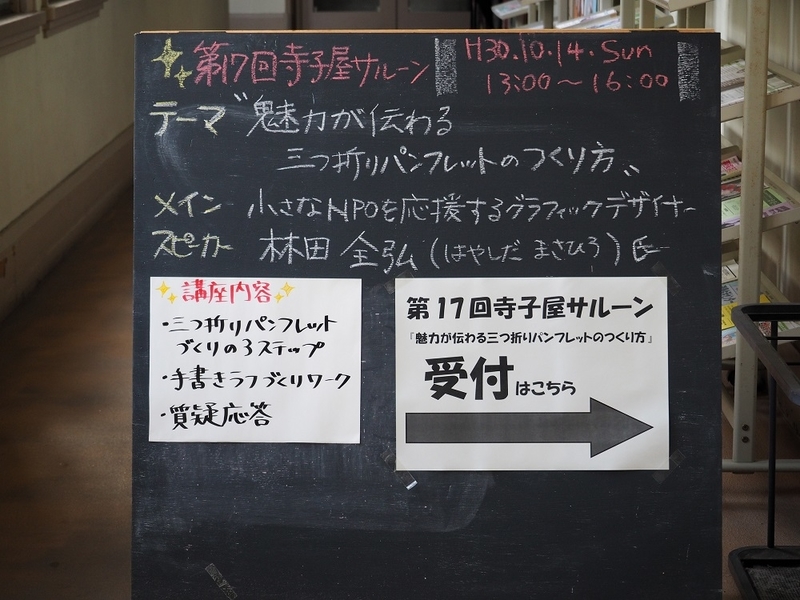 第17回寺子屋サルーン
H30.10.14.Sun
13:00〜16:00
テーマ〝魅力が伝わる
三つ折りパンフレットのつくり方〟
メイン 小さなNPOを応援するグラフィックデザイナー
スピーカー 林田 全弘(はやしだ まさひろ)氏
講座内容
・三つ折りパンフレット
づくりの3ステップ
・手書きラフづくりワーク
・質疑応答
第17回寺子屋サルーン
『魅力が伝わる三つ折りパンフレットのつくり方』
受付はこちら